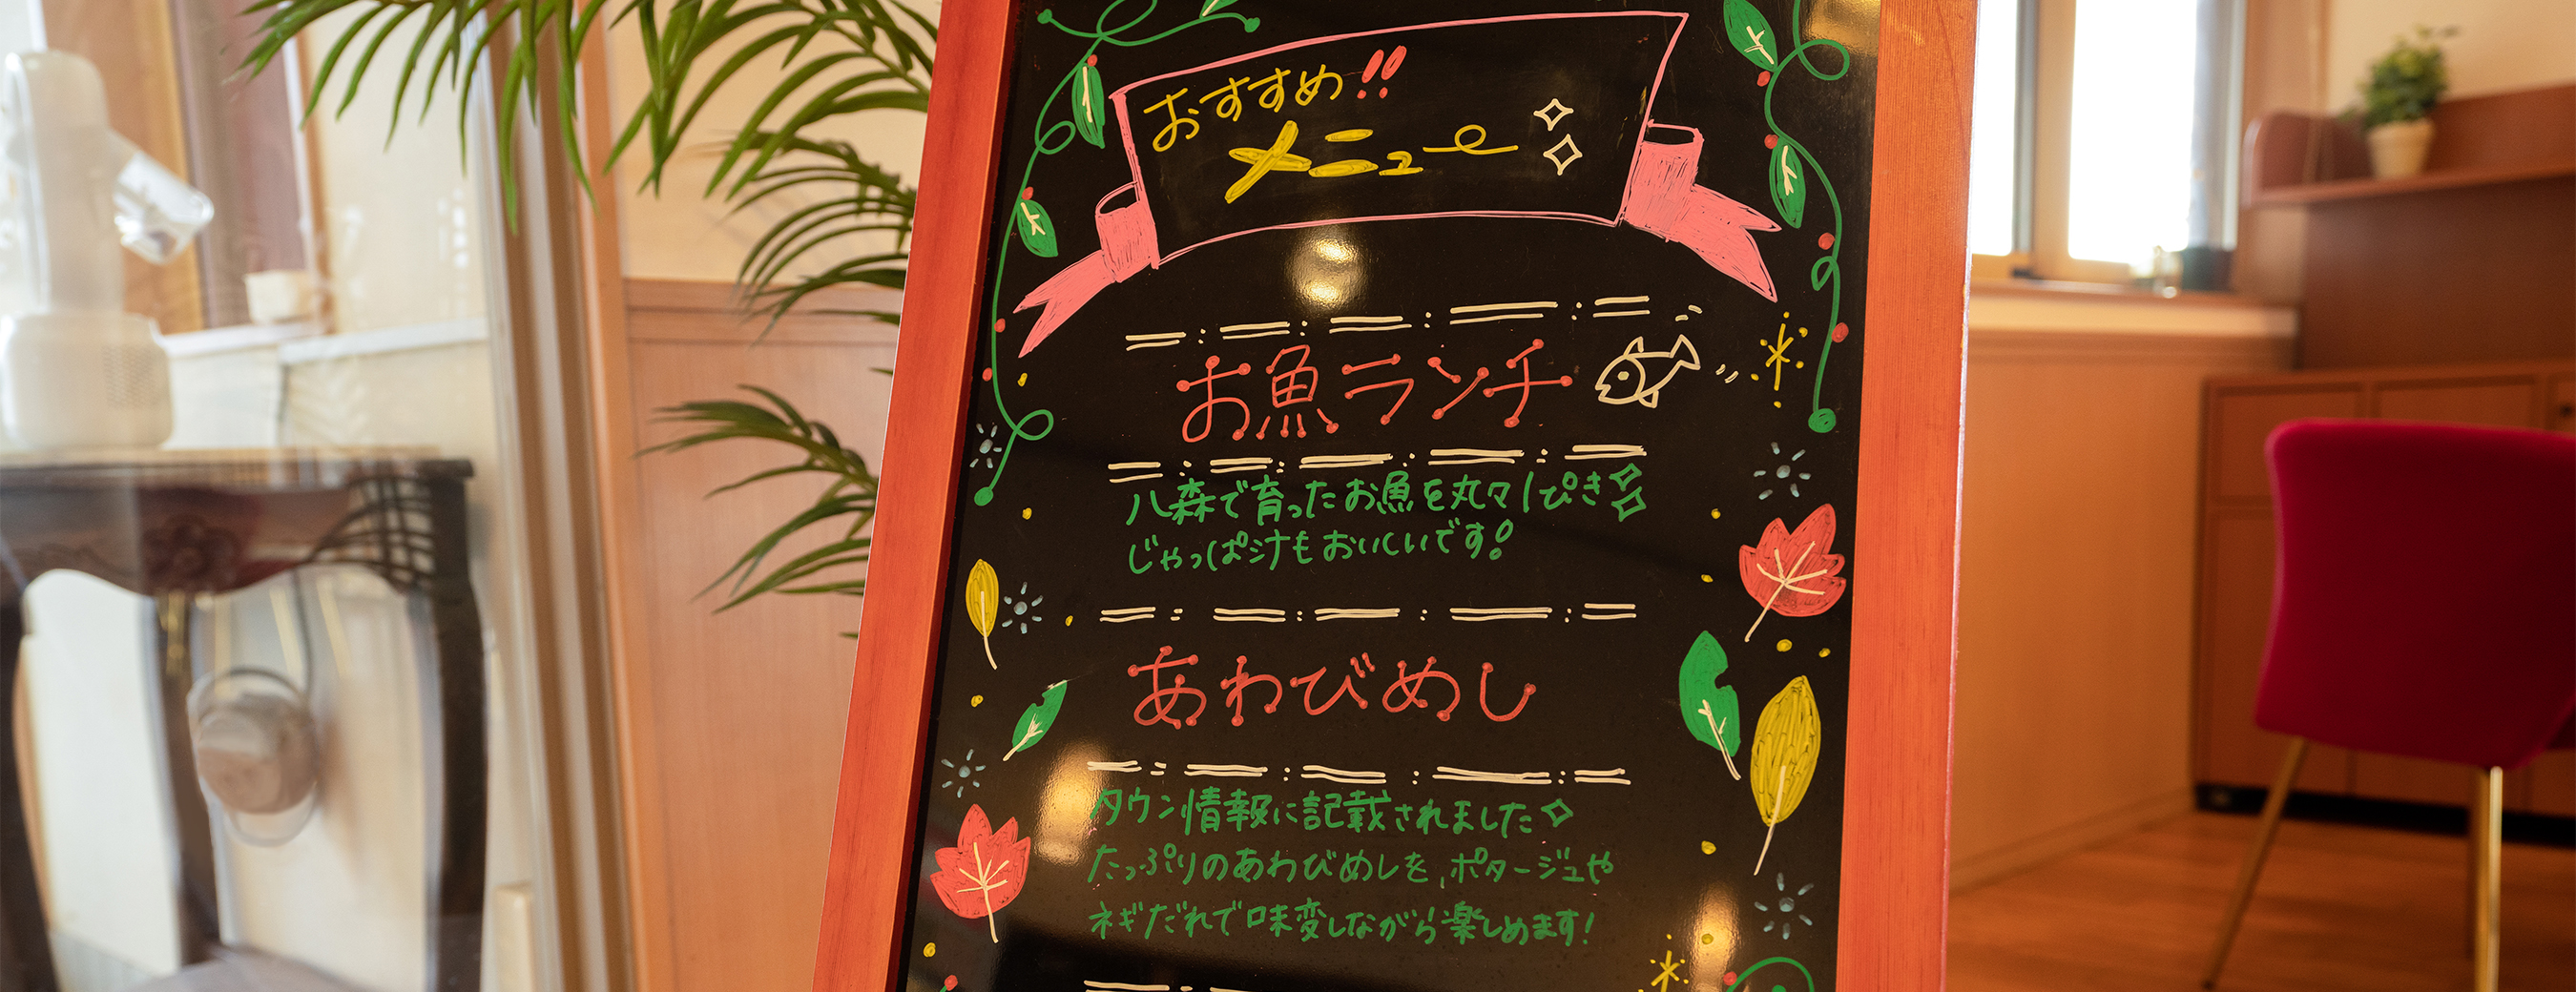 おすすめ!!
メニュー
お魚ランチ
八森で育ったお魚を丸々1ぴき
じゃっぱ汁もおいしいです!
あわびめし
タウン情報に記載されました
たっぷりのあわびめしを、ポタージュや
ネギだれで味変しながら楽しめます!